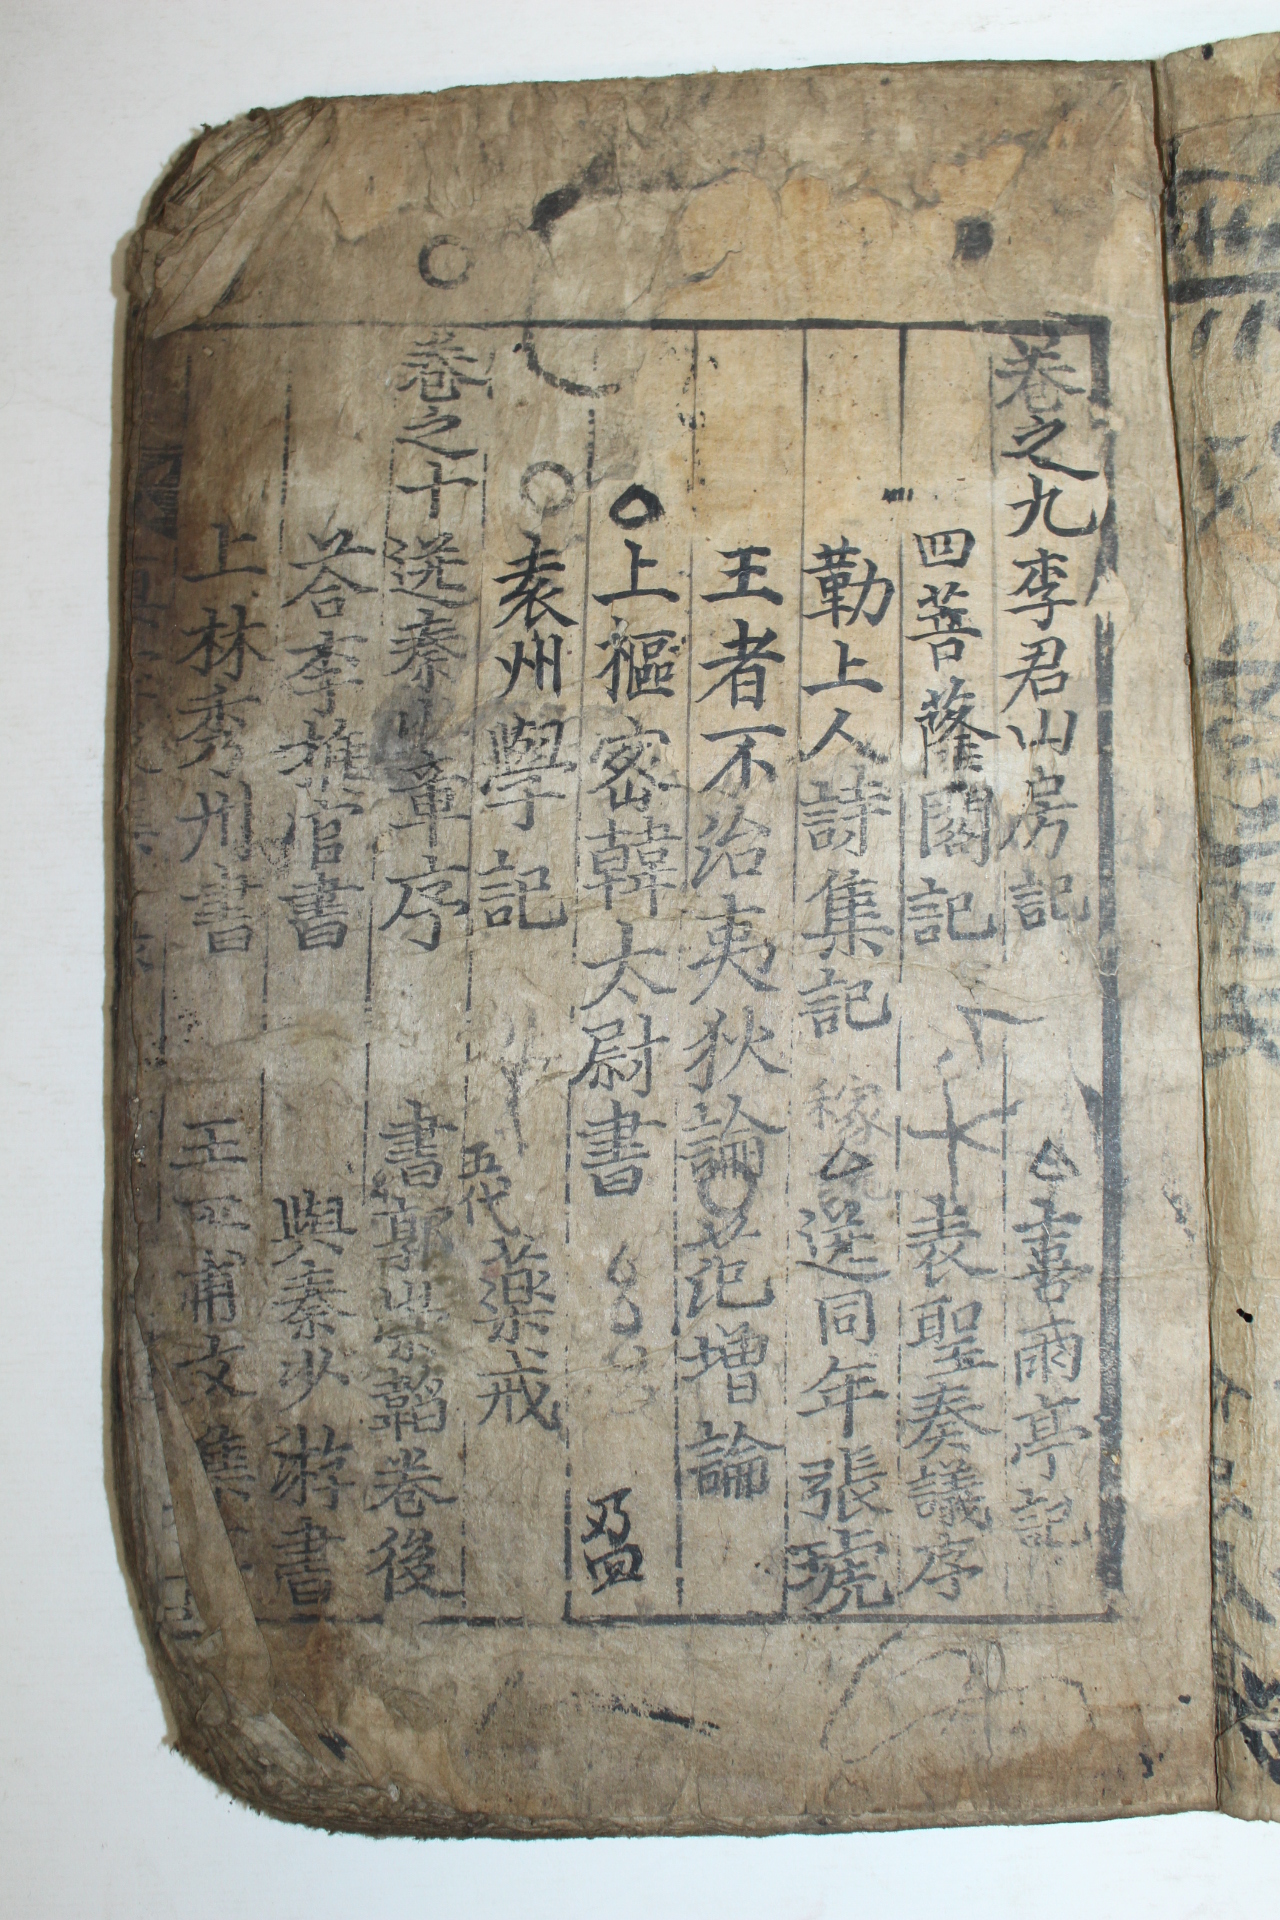 卷之九李君山房記 喜雨亭記
四菩薩閣記 表聖奏議序
勤上人詩集記 稼說送同年張琥
王者不治夷狄論 范增論
上樞密韓太尉書
袁州學記 五代 藥戒
卷之十送秦少章序 書郭崇韜卷後
答李推官書 與秦少游書
上林秀州書 王正甫文集